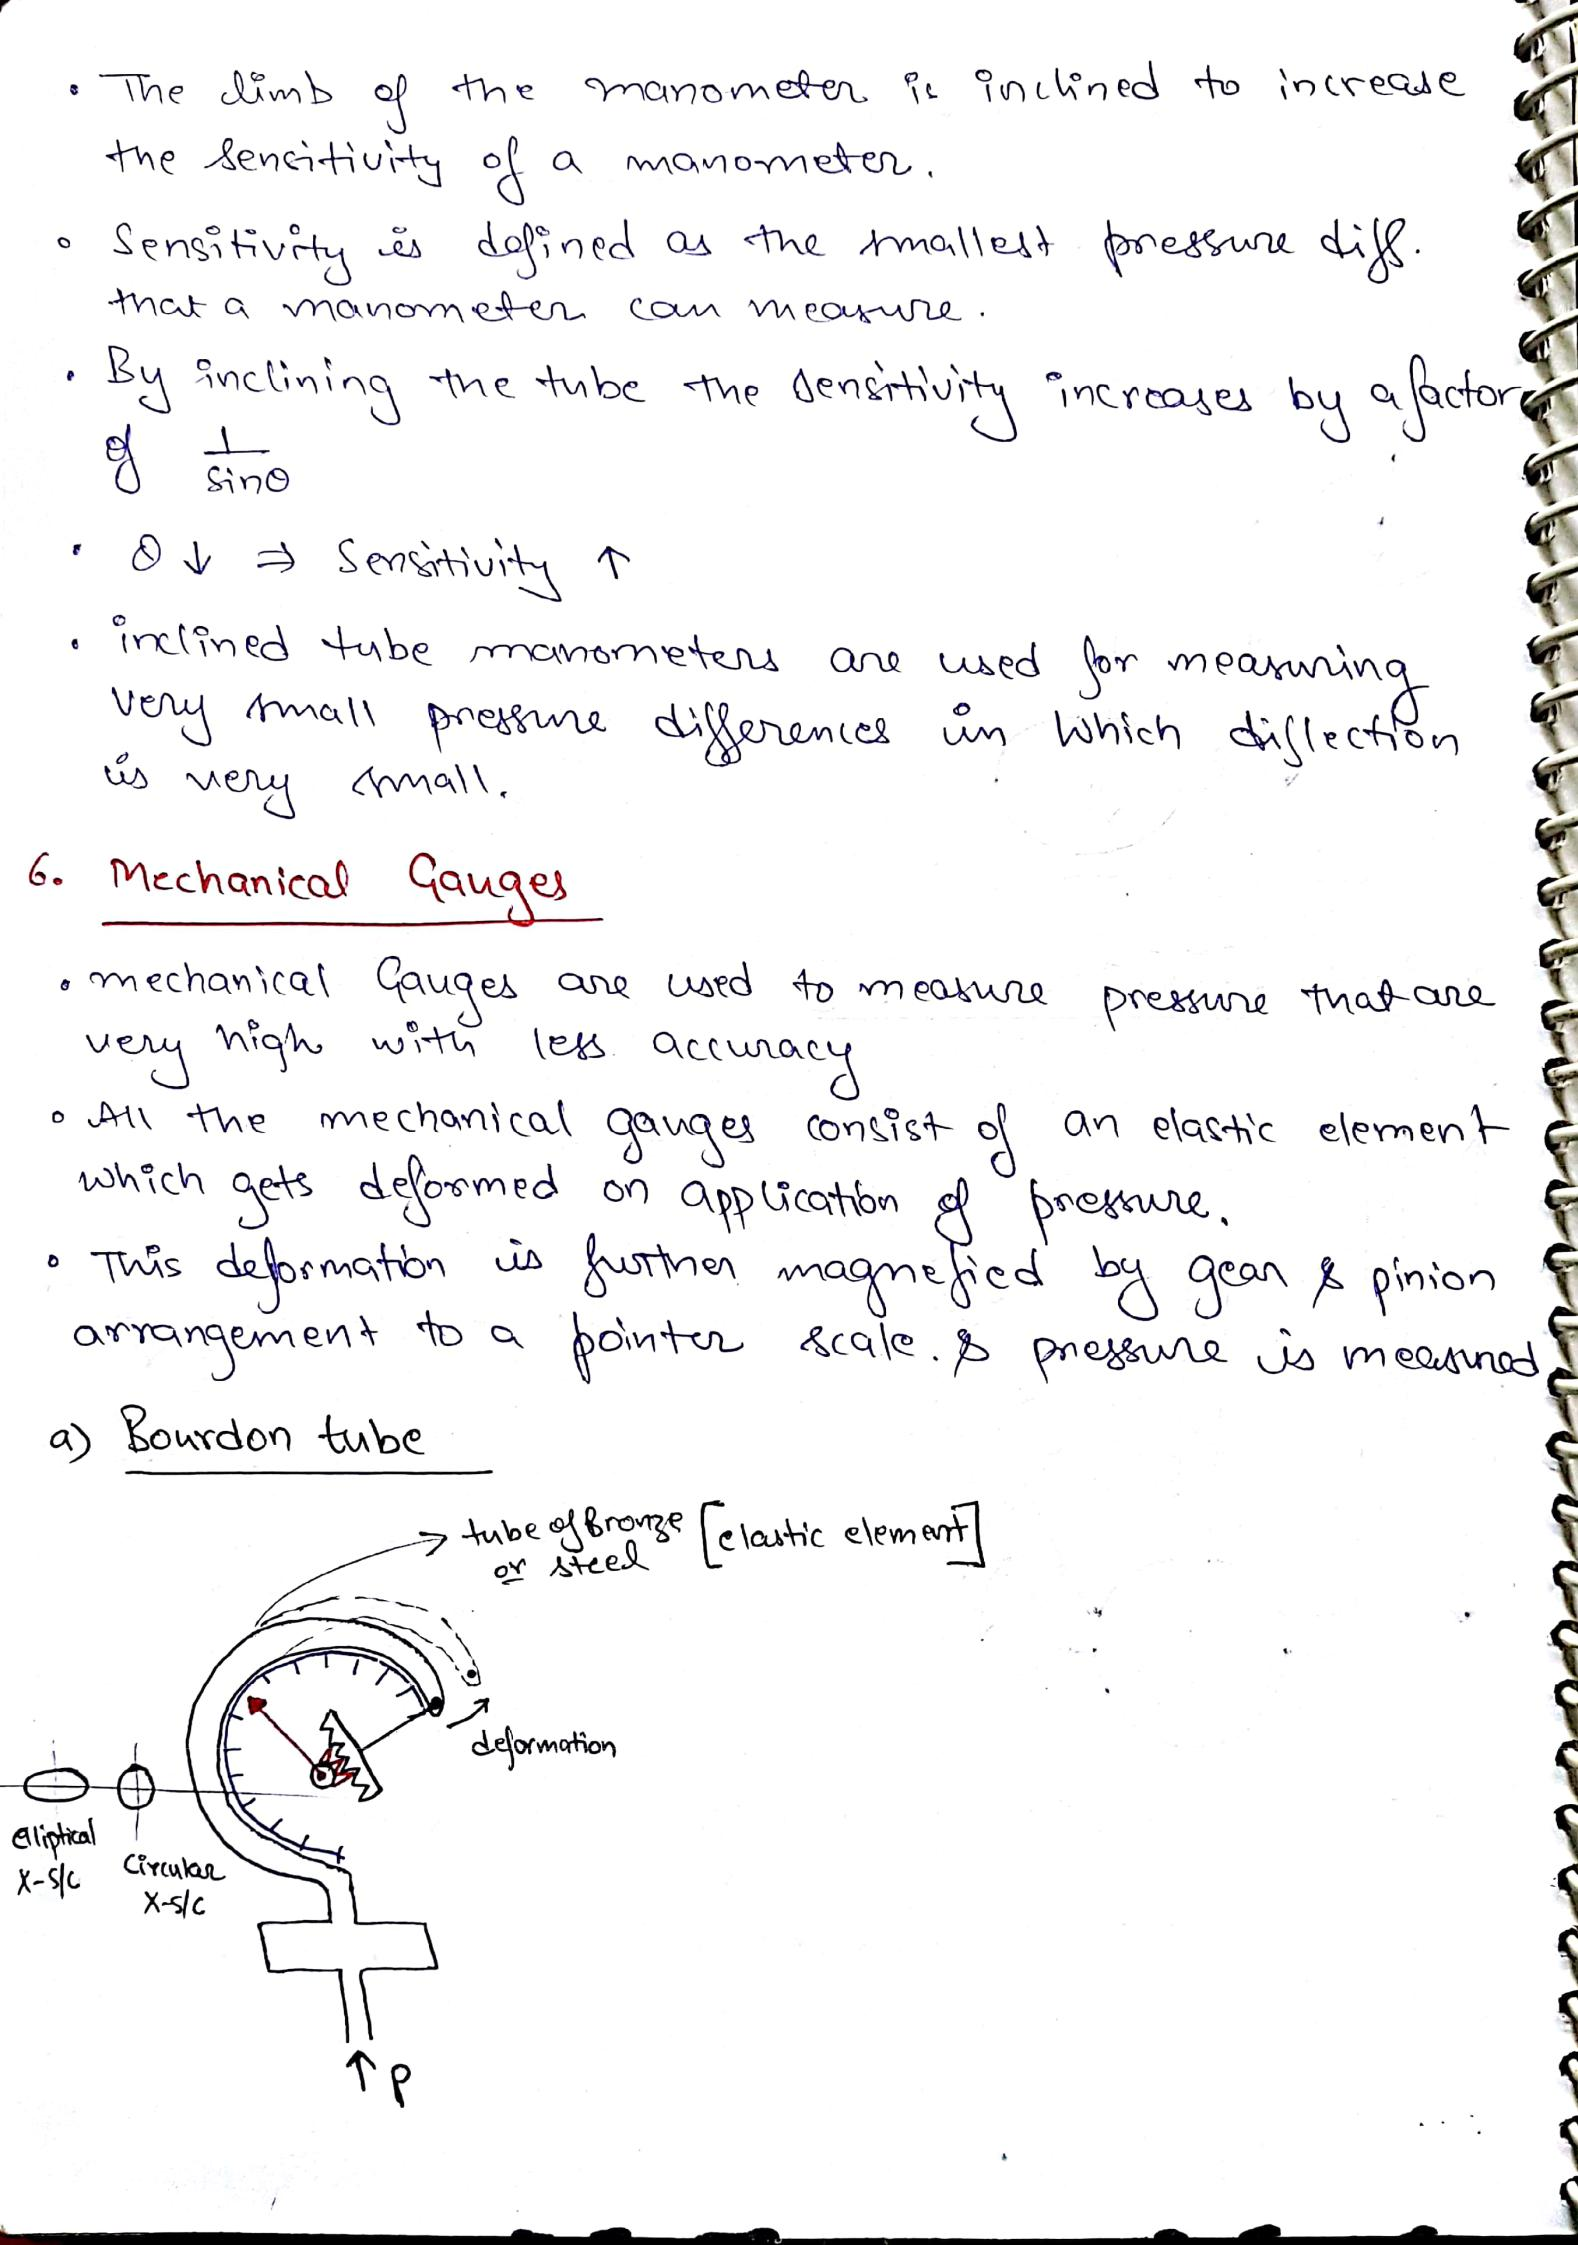 • The limb of the manometer is inclined to increase
the sensitivity of a manometer.
• Sensitivity is defined as the smallest pressure diff.
that a manometer can measure.
• By inclining the tube the sensitivity increases by a factor
of 1/sinθ
• θ ↓ ⇒ Sensitivity ↑
• inclined tube manometers are used for measuring
very small pressure differences in which diflection
is very small.
6. Mechanical Gauges
• mechanical Gauges are used to measure pressure that are
very high with less accuracy
• All the mechanical gauges consist of an elastic element
which gets deformed on application of pressure.
• This deformation is further magnefied by gear & pinion
arrangement to a pointer scale. & pressure is measured
a) Bourdon tube
→ tube of Bronze [elastic element]
or steel
deformation
Eliptical
X-s/c
Circular
X-s/c
↑ P